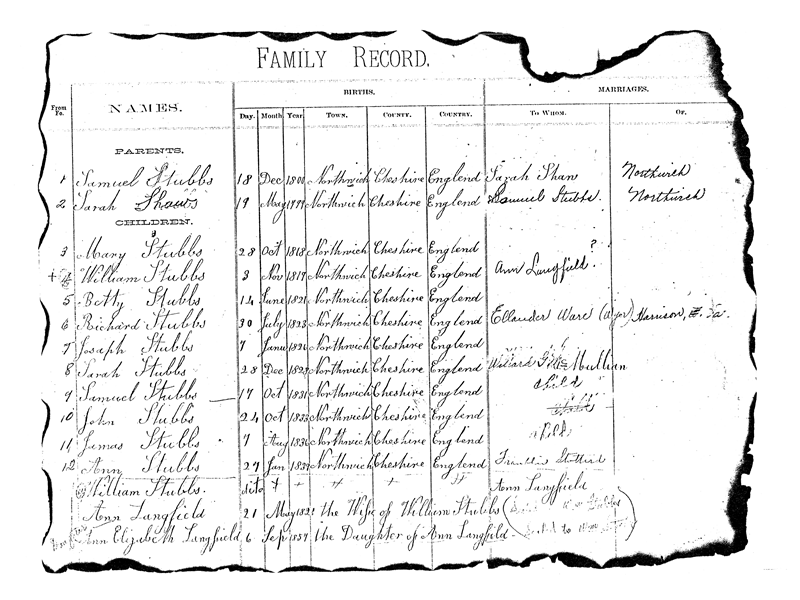 FAMILY RECORD.
From Fo. NAMES. BIRTHS. MARRIAGES.
Day. Month Year. TOWN. COUNTY. COUNTRY. TO WHOM. OF.
PARENTS.
1 Samuel Stubbs 18 Dec 1800 Northwich Cheshire Englend Sarah Shaw Northwich
2 Sarah Shaws 19 May 1799 Northwich Cheshire Englend Samuel Stubbs. Northwich
CHILDREN.
3 Mary Stubbs 28 Oct 1818 Northwich Cheshire Englend
+ 4 William Stubbs 3 Nov 1819 Northwich Cheshire Englend Ann Langfield?
5 Betty Stubbs 14 June 1821 Northwich Cheshire Englend
6 Richard Stubbs 30 July 1823 Northwich Cheshire Englend Ellander Ware Harrison,
7 Joseph Stubbs 7 Janu 1826 Northwich Cheshire Englend
8 Sarah Stubbs 28 Dec 1828 Northwich Cheshire Englend Willard Mullian
9 Samuel Stubbs 17 Oct 1831 Northwich Cheshire Englend child
10 John Stubbs 24 Oct 1833 Northwich Cheshire Englend
11 James Stubbs 7 Aug 1836 Northwich Cheshire Englend child
12 Ann Stubbs 27 Jan 1839 Northwich Cheshire Englend
William Stubbs. dito + + + + Ann Langfield
Ann Langfield 21 May the Wife of William Stubbs
Ann Elizabeth Langfield 6 Sep the Daughter of Ann Langfield